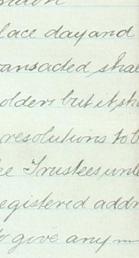 lace day and
ansacted shal
olders but it sh
resolutions to b
e Trustees und
egistered addr
to give any